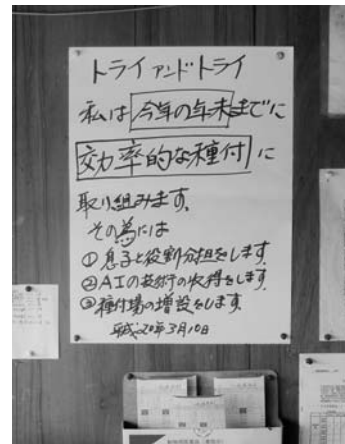 トライ アンド トライ
私は 今年の年末までに
効率的な種付 に
取り組みます。
その為には
① 息子と役割分担をします
② AIの技術の収得をします
③ 種付場の増設をします
平成20年3月10日